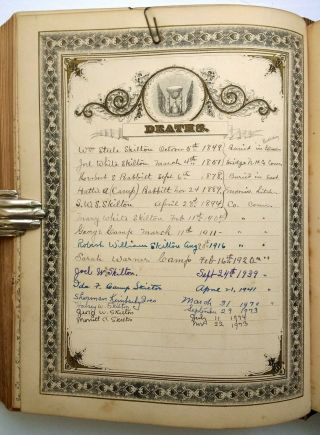 DEATHS.
Wm Steele Skilton October 8th 1849. Buried in
Joel White Skilton March 4th 1851
Herbert S Babbitt Sept 6th 1878. Buried in East
Hattie A (Camp) Babbitt Nov 24 1889. Morris Litch.
G.W.S. Skilton April 28th 1894 Co. Conn.
Mary White Skilton Feb 11th " "
George Camp March 11th 1911 - " "
Robert William Skilton Aug 1916 " "
Sarah Warner Camp Feb. 16th 1920 " "
Joel W. Skilton. Sept 24th 1939 - "
Ida F. Camp Skilton April 21, 1941 "
Sherman Kimberly Ives March 31
Skilton September 29 1973
W. Skilton July 11 1974
A. Skilton 22 1973